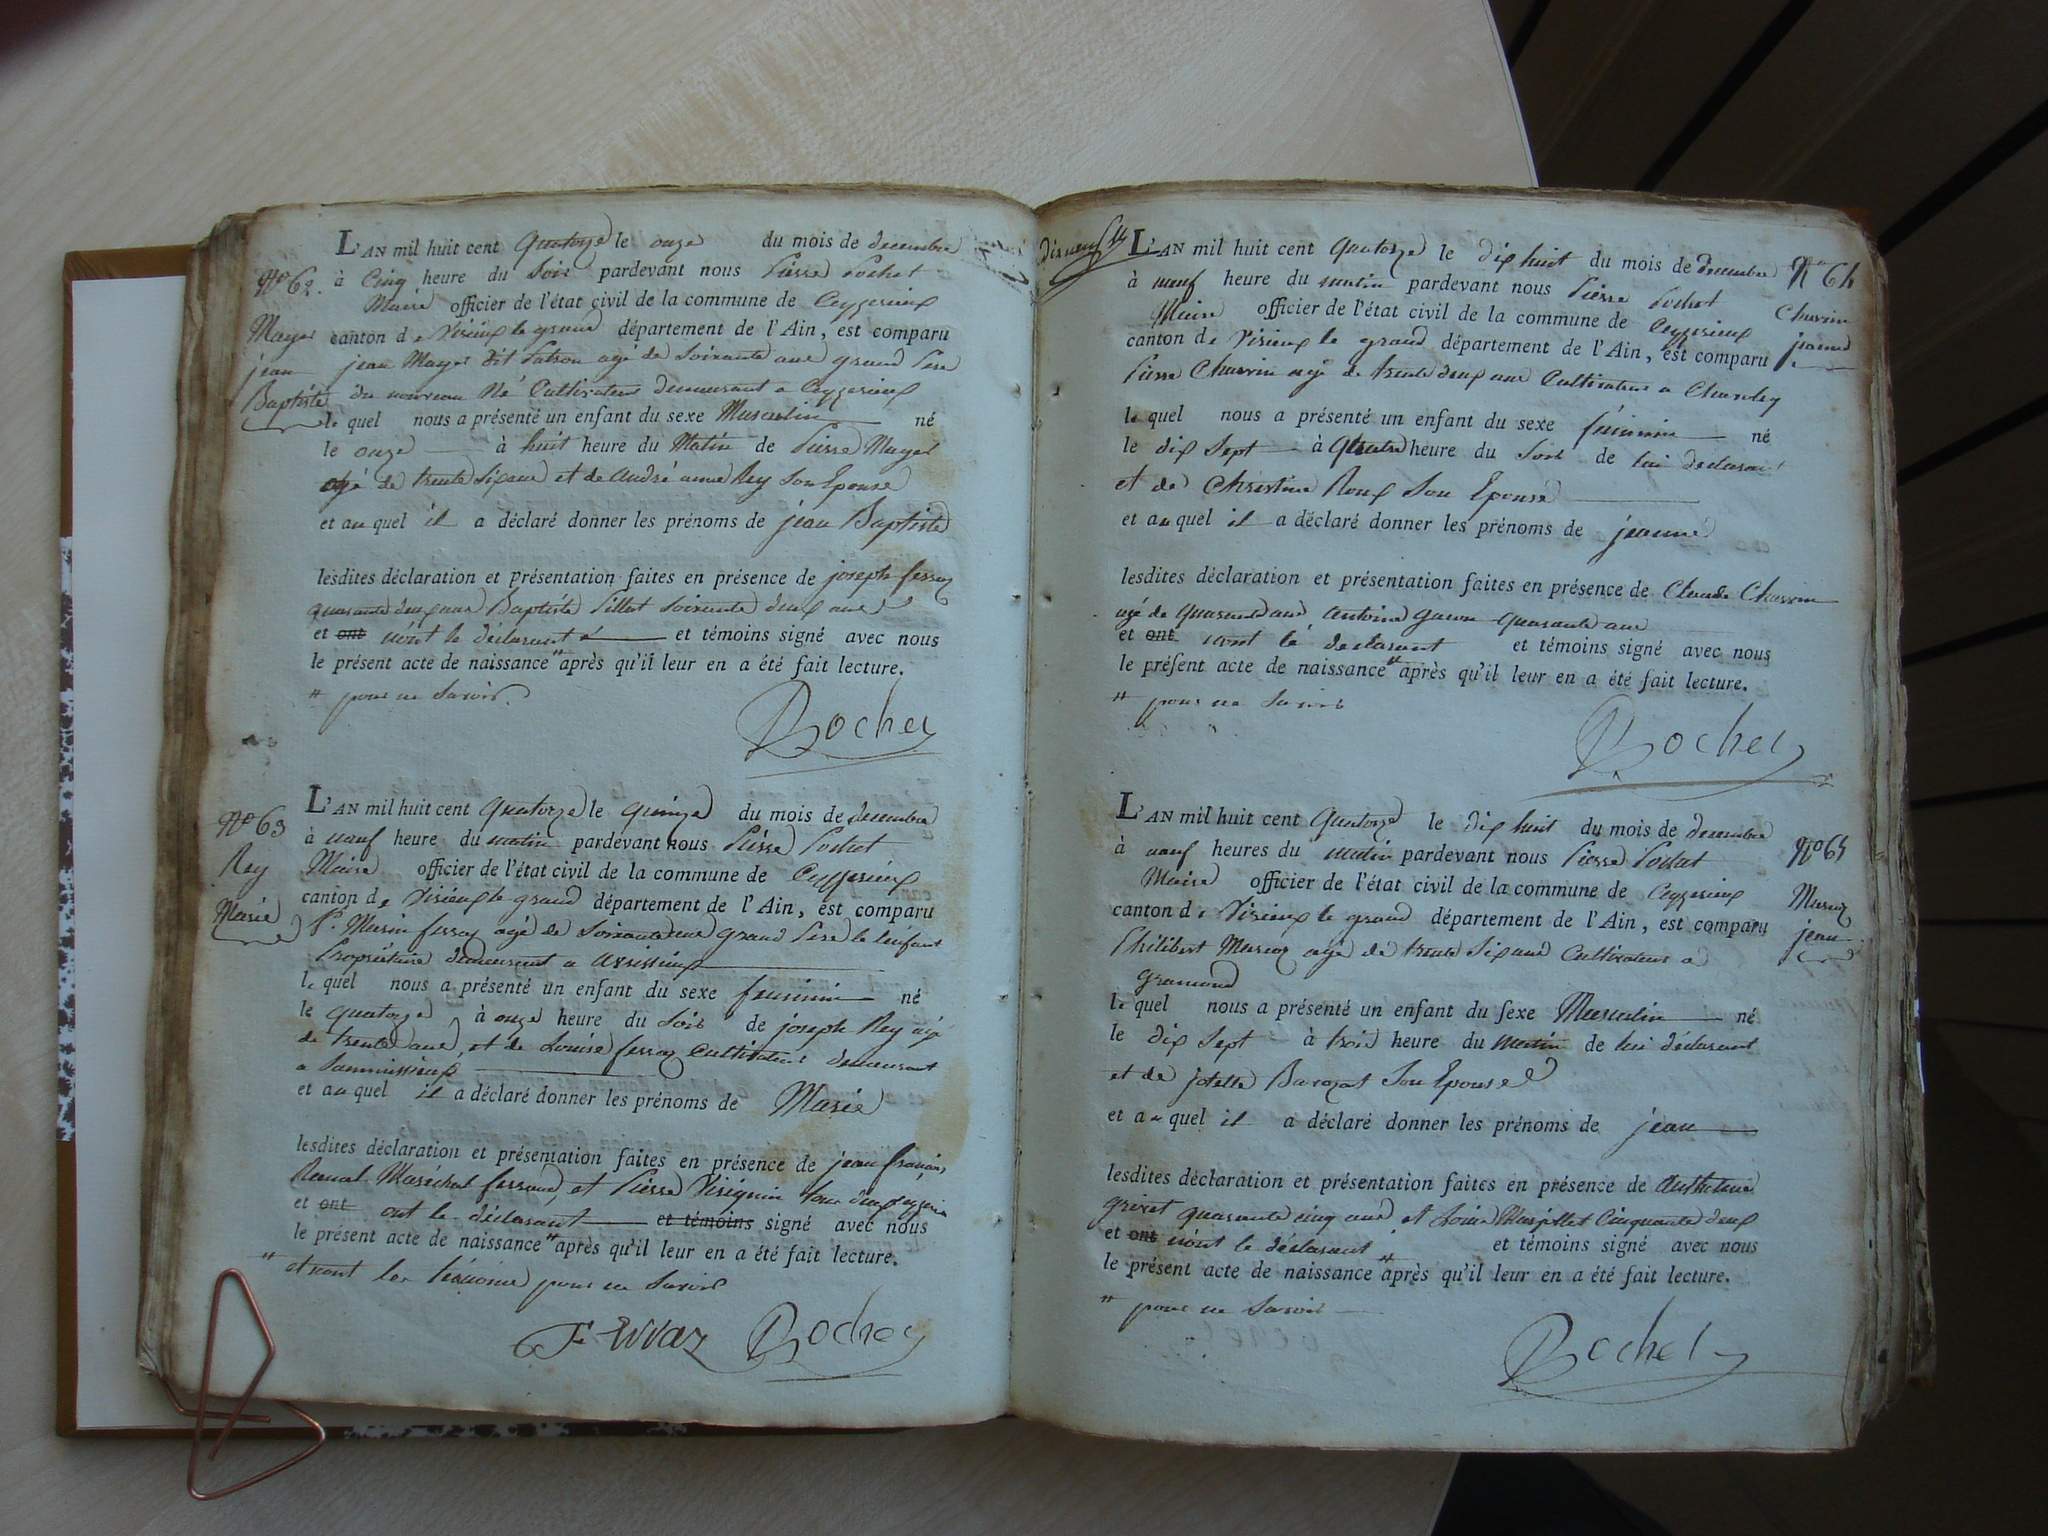 L'AN mil huit cent quatorze le onze du mois de decembre
N° 62. à cinq heure du soir pardevant nous Pierre Pochet
Maire officier de l'état civil de la commune de Ceyzerieux
Mayet canton de Virieux le grand département de l'Ain, est comparu
jean jean Mayet dit Patron agé de soixante ans grand Pere
Baptiste du nouveau Né Cultivateur demeurant a Ceyzerieux
le quel nous a présenté un enfant du sexe Masculin né
le onze à huit heure du Matin de Pierre Mayet
agé de trente six ans et de andré anne Rey son Epouse
et au quel il a déclaré donner les prénoms de jean Baptiste
lesdites déclaration et présentation faites en présence de joseph ferraz
quarante deux ans Baptiste Pillot soixante deux ans
et ont n'ont le déclarant et témoins signé avec nous
le présent acte de naissance " après qu'il leur en a été fait lecture.
" pour ne savoir
Pochet
L'AN mil huit cent quatorze le quinze du mois de decembre
N° 63 à neuf heure du matin pardevant nous Pierre Pochet
Rey Maire officier de l'état civil de la commune de Ceyzerieux
canton de Virieux le grand département de l'Ain, est comparu
Marie Marin ferraz agé de soixante ans grand Pere de l'enfant
Propriétaire demeurant a
le quel nous a présenté un enfant du sexe feminin né
le quatorze à onze heure du soir de joseph Rey agé
de trente ans, et de Louise ferraz Cultivateur demeurant
a
et au quel il a déclaré donner les prénoms de Marie
lesdites déclaration et présentation faites en présence de jean françois
Maréchal ferrand, et Pierre tous deux
et ont ont le déclarant et témoins signé avec nous
le présent acte de naissance " après qu'il leur en a été fait lecture.
" et n'ont les témoins pour ne savoir
Ferraz Pochet
L'AN mil huit cent quatorze le dix huit du mois de decembre N° 64
à neuf heure du matin pardevant nous Pierre Pochet
Maire officier de l'état civil de la commune de Ceyzerieux Charvin
canton de Virieux le grand département de l'Ain, est comparu jeanne
Pierre Charvin agé de trente deux ans Cultivateur a Chavoley
le quel nous a présenté un enfant du sexe féminin né
le dix sept à quatre heure du soir de lui déclarant
et de Christine Roux son Epouse
et au quel il a déclaré donner les prénoms de jeanne
lesdites déclaration et présentation faites en présence de Claude Charvin
agé de quarante ans, antoine quarante ans
et ont n'ont le declarant et témoins signé avec nous
le présent acte de naissance " après qu'il leur en a été fait lecture.
" pour ne savoir
Pochet
L'AN mil huit cent quatorze le dix huit du mois de decembre
à neuf heures du matin pardevant nous Pierre Pochet N° 65
Maire officier de l'état civil de la commune de Ceyzerieux
canton de Virieux le grand département de l'Ain, est comparu
Philibert agé de trente six ans Cultivateur a jean
gramond
le quel nous a présenté un enfant du sexe Masculin né
le dix sept à trois heure du matin de lui déclarant
et de son Epouse
et au quel il a déclaré donner les prénoms de jean
lesdites déclaration et présentation faites en présence de Anthelme
quarante cinq ans et Cinquante deux
et ont n'ont le déclarant et témoins signé avec nous
le présent acte de naissance " après qu'il leur en a été fait lecture.
" pour ne savoir
Pochet